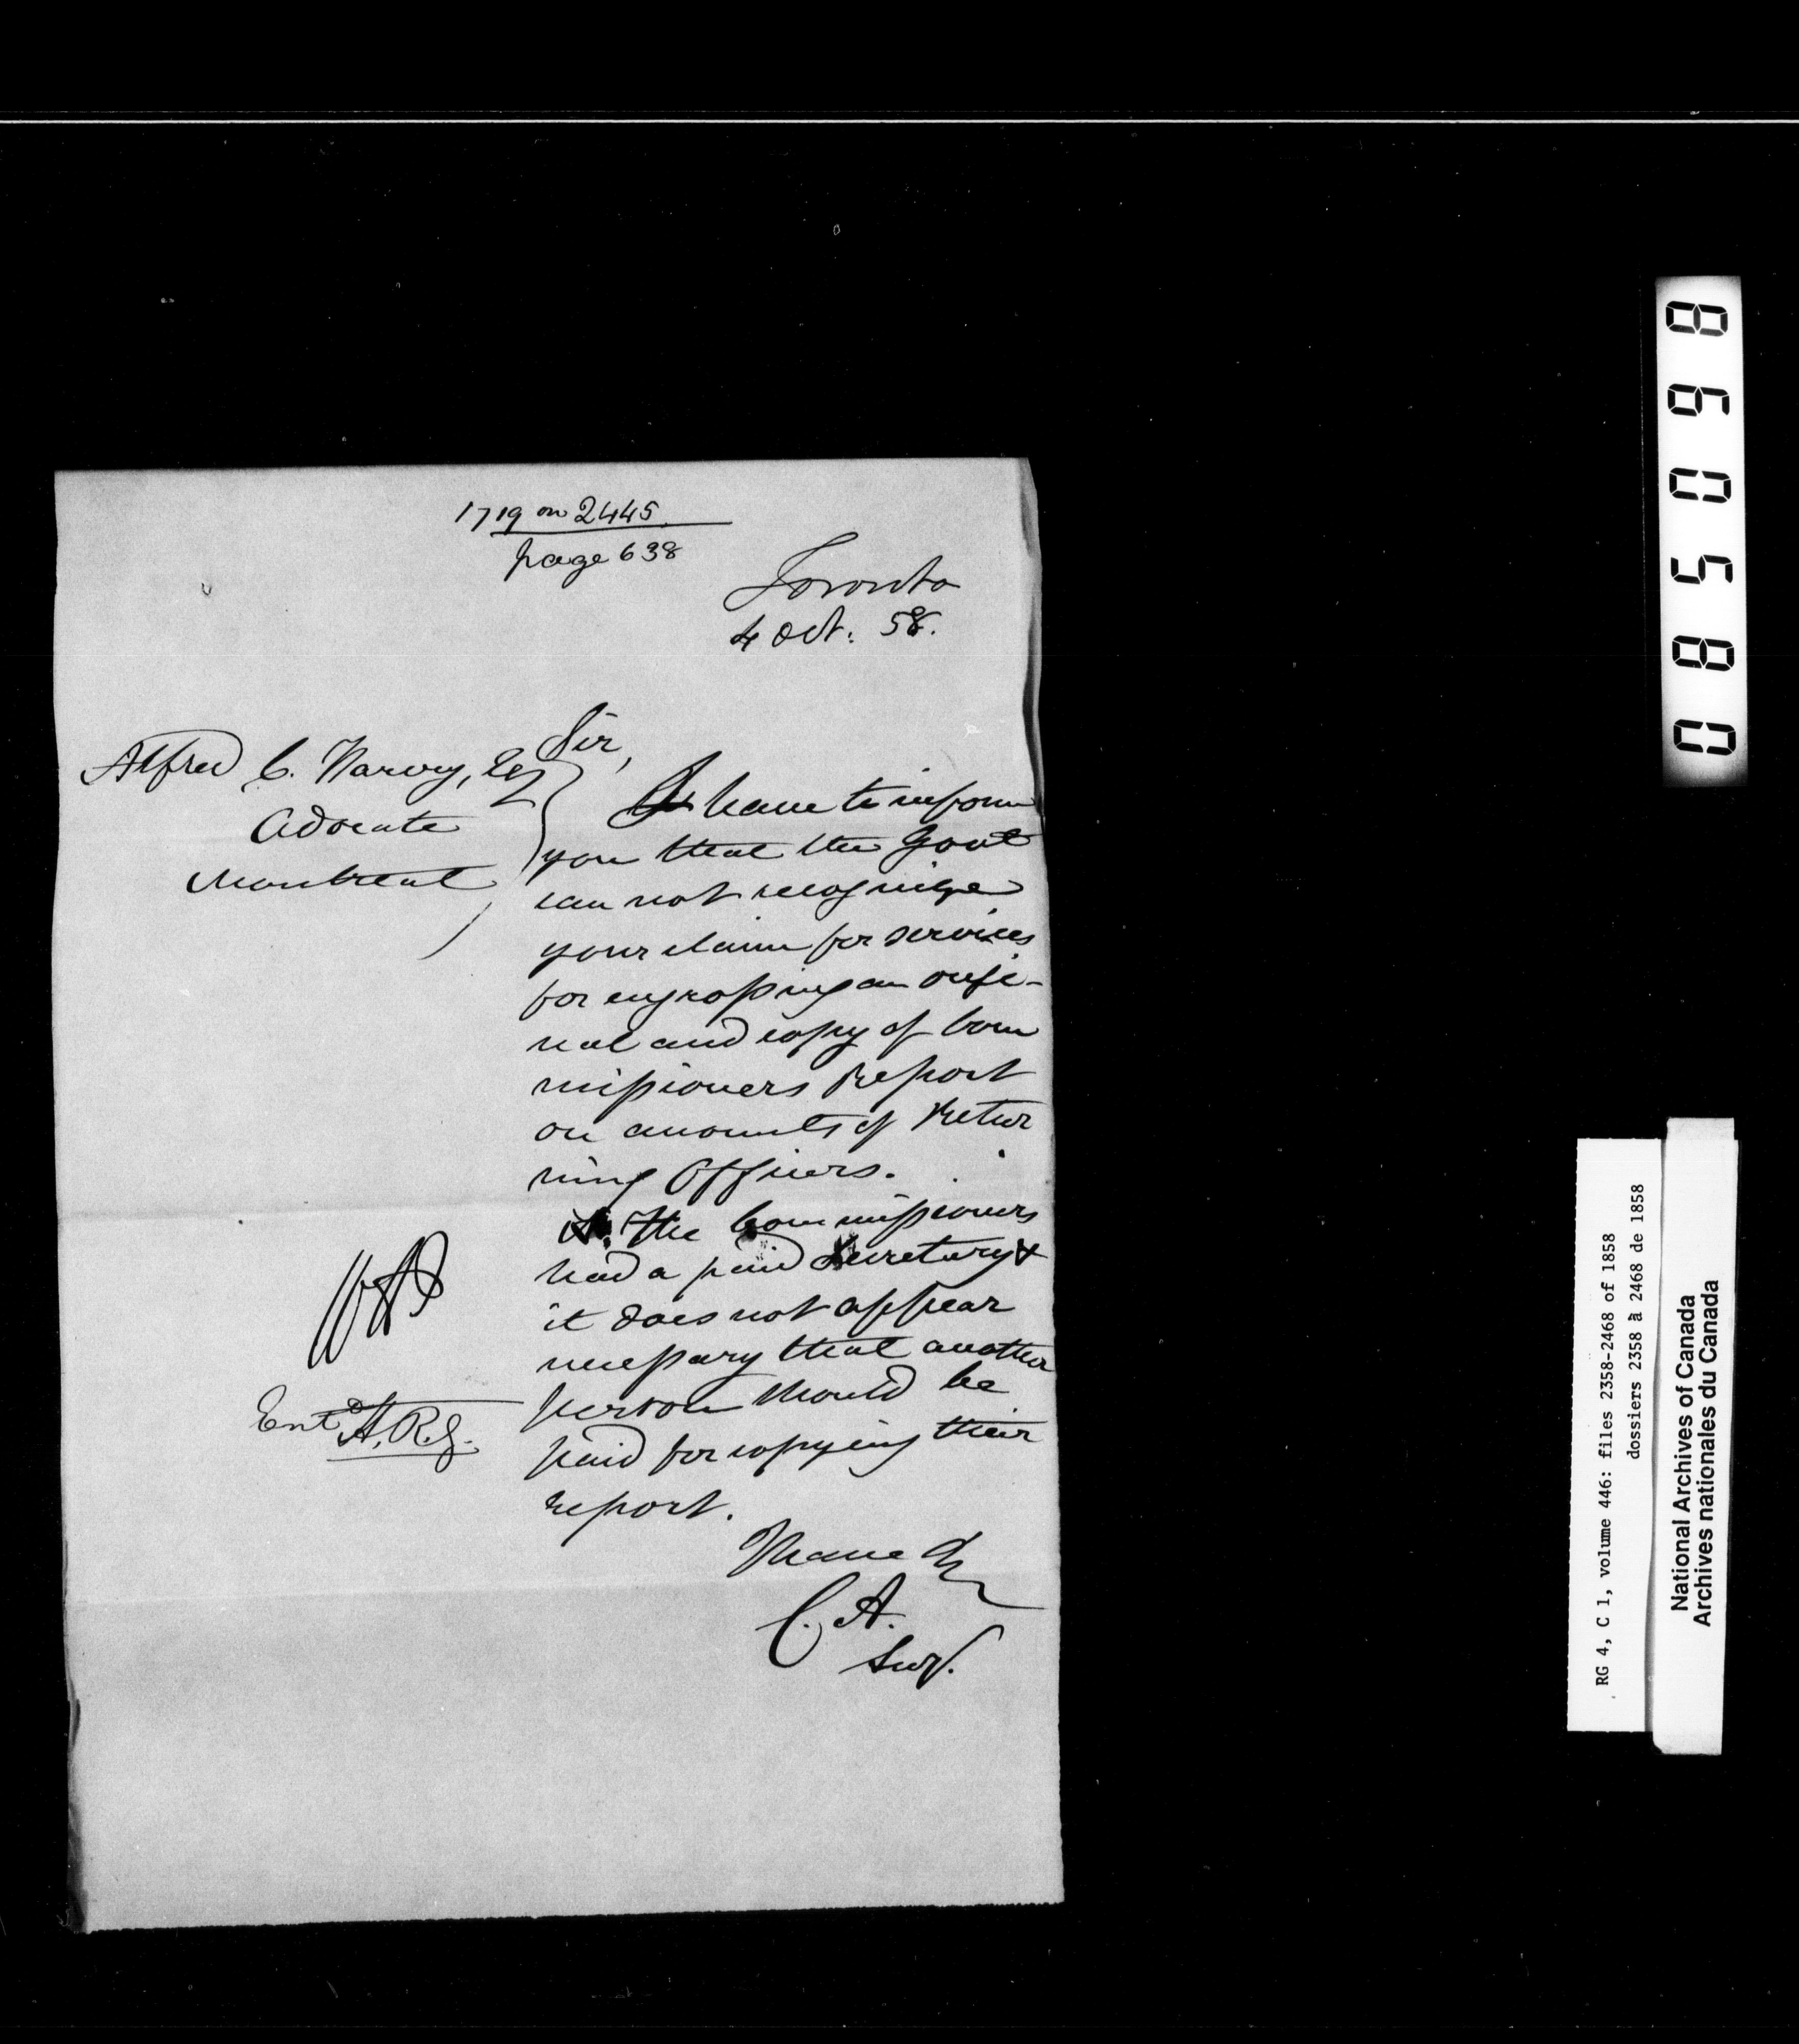 1719 on 2445
page 638
Toronto
4 Oct. 58.
Alfred C. Harvy, Esq
Advocate
Montreal
Sir,
I have to inform
you that the Govt
can not recognize
your claim for services
for engrossing an origi-
nal and copy of Com
missioners Report
on accounts of Retur
ning Officers.
The Commissioners
had a paid Secretary &
it does not appear
necessary that another
person should be
paid for copying their
report.
I have &c
C. A.
Secy.
Entd A.R.G.
860580
RG 4, C 1, volume 446: files 2358-2468 of 1858
dossiers 2358 à 2468 de 1858
National Archives of Canada
Archives nationales du Canada